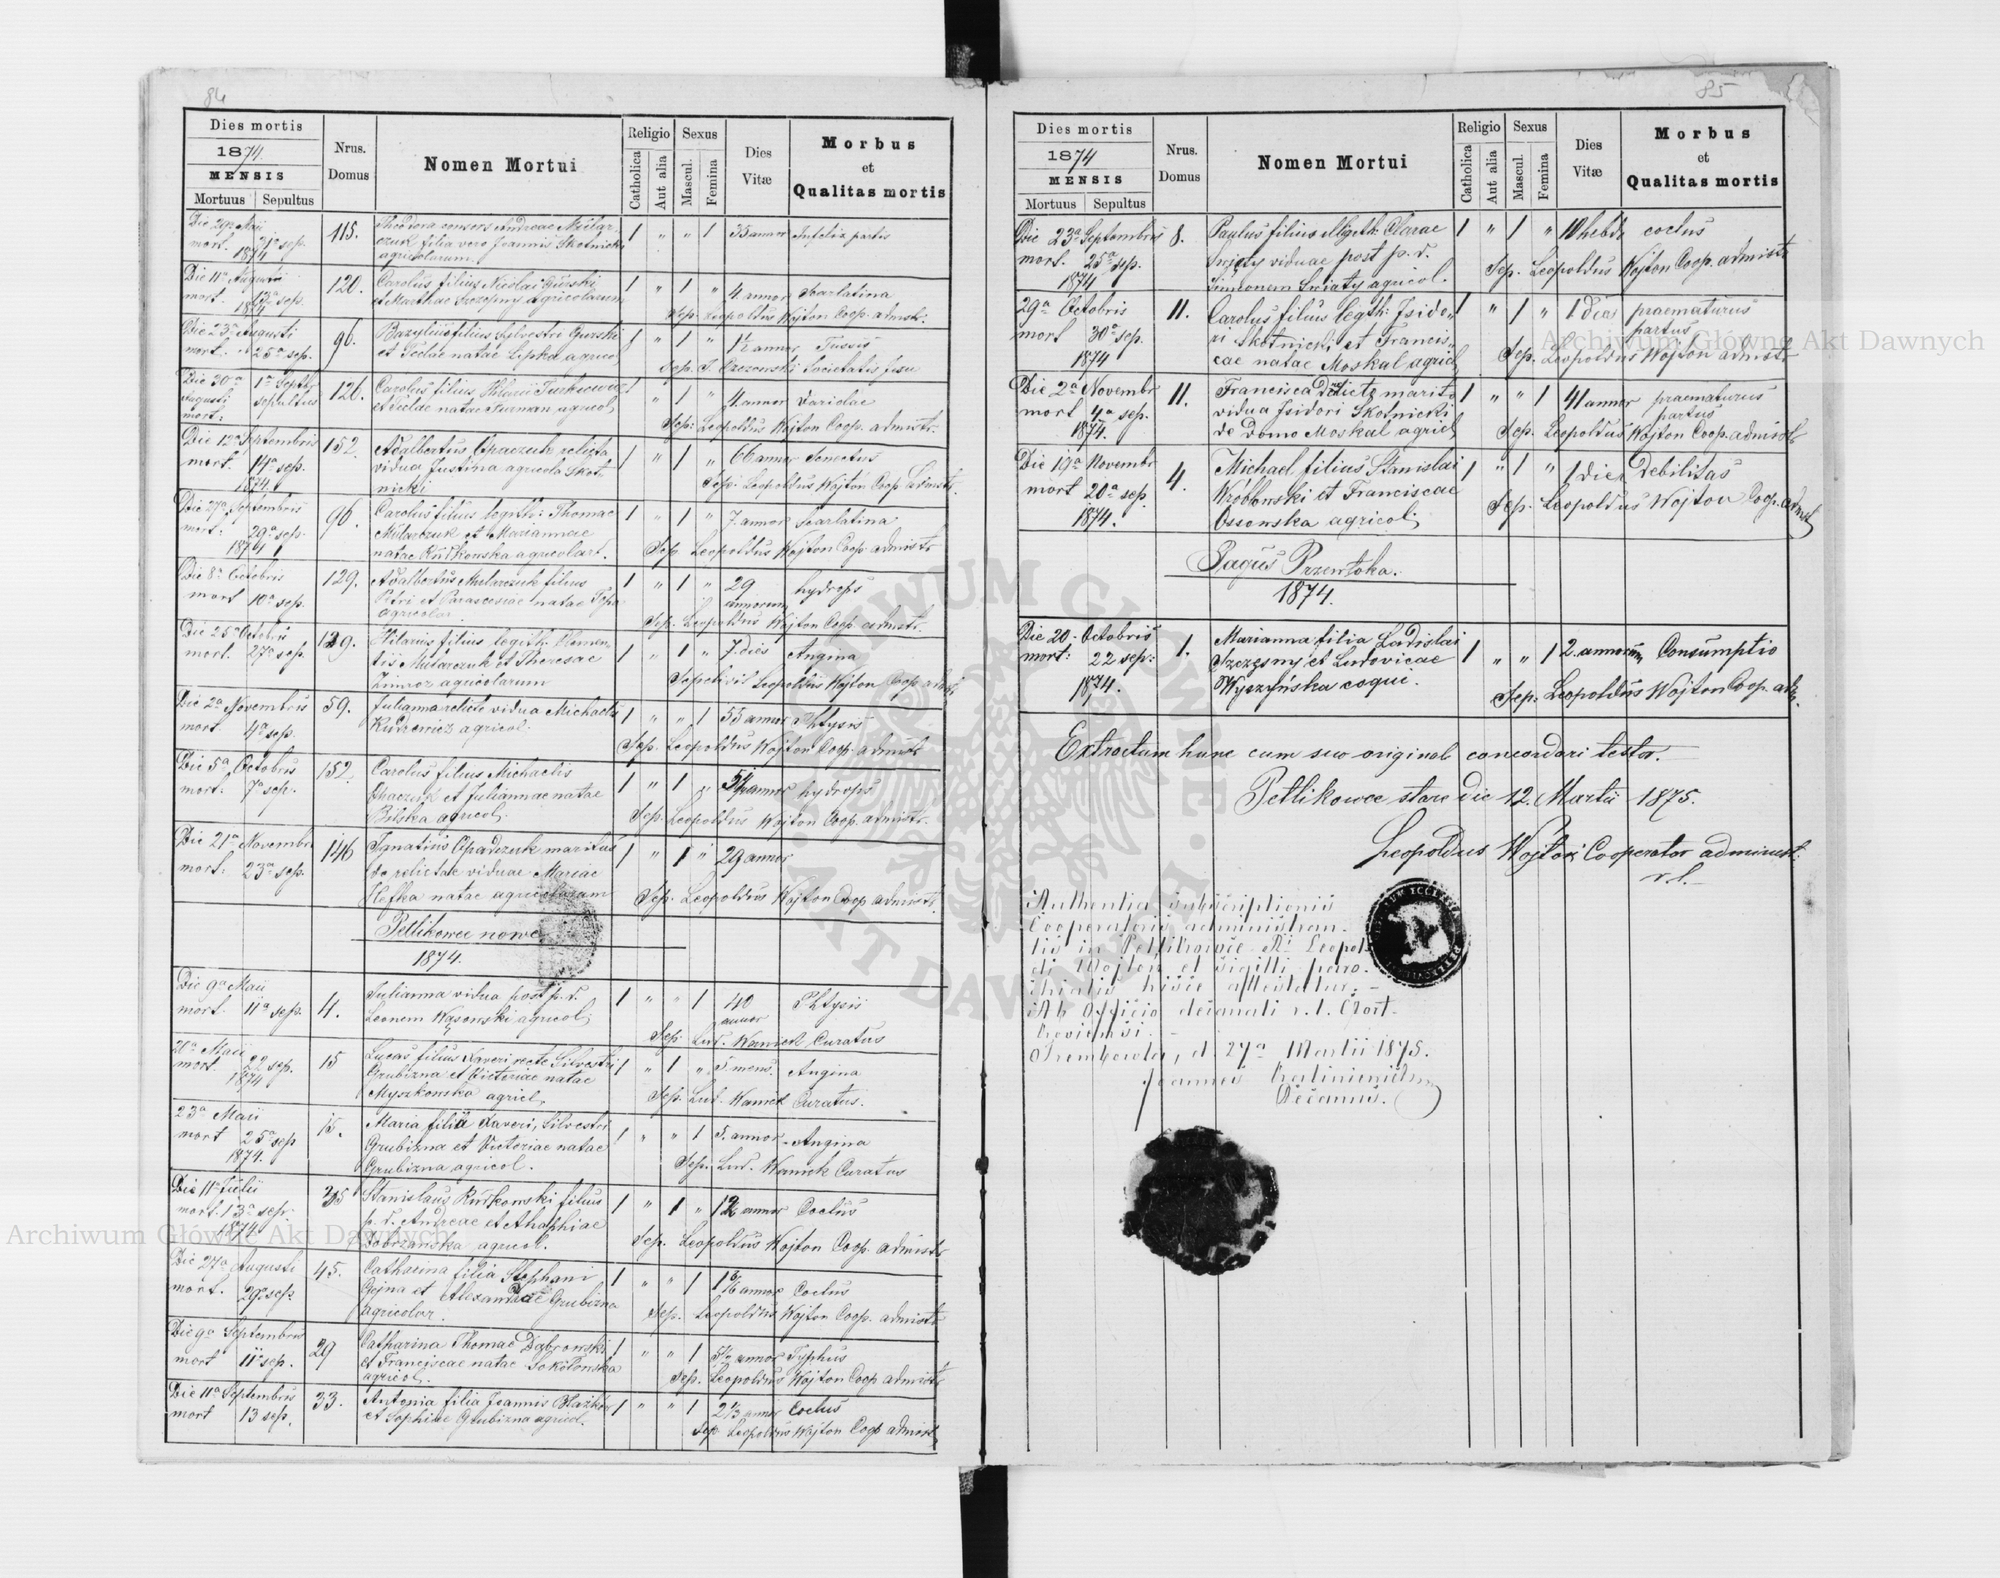 84
Dies mortis
1874.
MENSIS
Mortuus Sepultus
Nrus. Domus
Nomen Mortui
Religio
Catholica
Aut alia
Sexus
Mascul.
Femina
Dies Vitæ
Morbus
et
Qualitas mortis
Die 29a Maii
mort. 31a sep.
1874
115.
Theodora consors Andreae
filia vero Joannis Skotnicki
agricolarum.
1 " " 1 35 annor Infelix partus
Die 11a Augusti
mort. 13a sep.
1874
120.
Carolus filius Nicolai Gurski
et Marthae agricolarum
1 " 1 " 4 annor Scarlatina
Sep. Leopoldus Wojton Coop. admstr.
Die 23a Augusti
mort. 25a sep.
96.
Bazylius filius Sylvestri Gurski
et Teclae natae Lipka agricol.
1 " 1 " 1½ annor Tussis
Sep. Societatis Jesu
Die 30a Augusti mort:
1a Septbr sepultus
126.
Carolus filius Hilarii Turkiewicz
natae Furman agricol.
1 " 1 " 4 annor Variolae
Sep: Leopoldus Wojton Coop. admstr.
Die 12a Septembris
mort. 14a sep.
1874.
152.
Adalbertus Opaczuk relicta
vidua Justina agricola Skot-
nicki
1 " 1 " 66 annor Senectus
Sep: Leopoldus Wojton Coop. admstr.
Die 27a Septembris
mort. 29a sep.
1874
96.
Carolus filius legith: Thomae
Mularczuk et Mariannae
natae Rutkowska agricolar.
1 " 1 " 7 annor Scarlatina
Sep. Leopoldus Wojton Coop. admistr.
Die 8a Octobris
mort 10a sep.
129.
Adalbertus Mularczuk filius
Petri et Parasceviae natae
agricolar.
1 " 1 " 29 annorum hydrops
Sep. Leopoldus Wojton Coop. admstr.
Die 25a Octobris
mort. 27a sep.
129.
Hilarius filius legith. Clemen-
tis Mularczuk et Theresae
Zimroz agricolarum
1 " 1 " 7 dies Angina
Leopoldus Wojton Coop. admistr.
Die 2a Novembris
mort. 4a sep.
59.
Julianna relicta vidua Michaelis
Kudrewicz agricol.
1 " " 1 55 annor Phtysis
Sep. Leopoldus Wojton Coop. admistr.
Die 5a Octobris
mort: 7a sep.
152.
Carolus filius Michaelis
Opaczuk et Juliannae natae
Bilska agricol.
1 " 1 " annor hydrops
Sep. Leopoldus Wojton Coop. admistr.
Die 21a Novembr
mort: 23a sep.
146
Ignatius Opaczuk maritus
de relictae viduae Mariae
Hefka natae agricolarum
1 " 1 " 29 annor
Sep. Leopoldus Wojton Coop. admistr.
Petlikowce nowe
1874.
Die 9a Maii
mort. 11a sep.
4.
Julianna vidua post p. d.
Leonem Wąsowski agricol.
1 " " 1 40 annor Phtysis
Sep. Lud. Wanick Curatus
20a Maii
mort. 22 sep.
1874
15
Lucas filius Xaveri recte Silvestri
Grubizna et Victoriae natae
Myszkowska agricol.
1 " 1 " 5. mens. Angina
Sep. Lud. Wanick Curatus.
23a Maii
mort 25a sep
1874.
15.
Maria filia Xaveri, Silvestri
Grubizna et Victoriae natae
Grubizna agricol.
1 " " 1 5. annor Angina
Sep. Lud. Wanick Curatus
Die 11a Julii
mort. 13a sep.
1874
35
Stanislaus Rutkowski filius
p. d. Andreae et Ahaphiae
Dobrzańska agricol.
1 " 1 " annor Coctus
Sep. Leopoldus Wojton Coop. admistr
Die 27a Augusti
mort. 29a sep.
45.
Catharina filia Stephani
Gojna et Alexandrae Grubizna
agricolar.
1 " " 1 annor Coctus
Sep. Leopoldus Wojton Coop. admistr
Die 9a Septembris
mort 11a sep.
29
Catharina Thomae Dąbrowski
et Franciscae natae Sokołowska
agricol.
1 " " 1 annor Typhus
Sep. Leopoldus Wojton Coop admistr
Die 11a Septembris
mort 13 sep.
33.
Antonia filia Joannis
et Sophiae Grubizna agricol.
1 " " 1 2 1/3 annor Coctus
Sep Leopoldus Wojton Coop admistr
85
Dies mortis
1874
MENSIS
Mortuus Sepultus
Nrus. Domus
Nomen Mortui
Religio
Catholica
Aut alia
Sexus
Mascul.
Femina
Dies Vitæ
Morbus
et
Qualitas mortis
Die 23a Septembris
mort. 25a sep.
1874
8.
Paulus filius Clarae
viduae post p. d.
Simeonem Swiaty agricol.
1 " 1 " 10 hebd. coctus
Sep. Leopoldus Wojton Coop. admistr
29a Octobris
mort 30a sep.
1874
11.
Carolus filius legth: Isido-
ri Skotnicki et Francis-
cae natae Moskal agricol
1 " 1 " 1 dies praematurus
partus
Sep. Leopoldus Wojton admistr
Die 2a Novembr
mort 4a sep.
1874.
11.
Francisca relicta marito
vidua Isidori Skotnicki
de Domo Moskal agricol
1 " " 1 41 annor praematurus
partus
Sep. Leopoldus Wojton Coop. admistr
Die 19a Novembr
mort 20a sep
1874.
4.
Michael filius Stanislai
Wróblowski et Franciscae
Ossowska agricol.
1 " 1 " 1 dies Debilitas
Sep. Leopoldus Wojton Coop. admistr
Pagus Przewłoka.
1874.
Die 20. Octobris
mort: 22 sep:
1874.
1.
Marianna filia Ladislai
Szczęsny et Ludovicae
Wyszyńska coqui.
1 " " 1 2. annorum Consumptio
Sep. Leopoldus Wojton Coop. adm.
Extractum hunc cum suo original concordari testor.
Petlikowce stare die 12. Martii 1875.
Leopoldus Wojton Cooperator administ.
r. l.
Authentia subscriptionis
Cooperatoris administran-
tis in Petlikowce Rdi Leopol-
di Wojton et sigilli paro-
chialis hisce attestatur. –
Ab Officio decanali r. l. Czort-
koviensi. –
Trembowla, d. 27a Martii 1875.
Joannes
Decanus.
Archiwum Główne Akt Dawnych
Archiwum Główne Akt Dawnych
ARCHIWUM GŁÓWNE AKT DAWNYCH